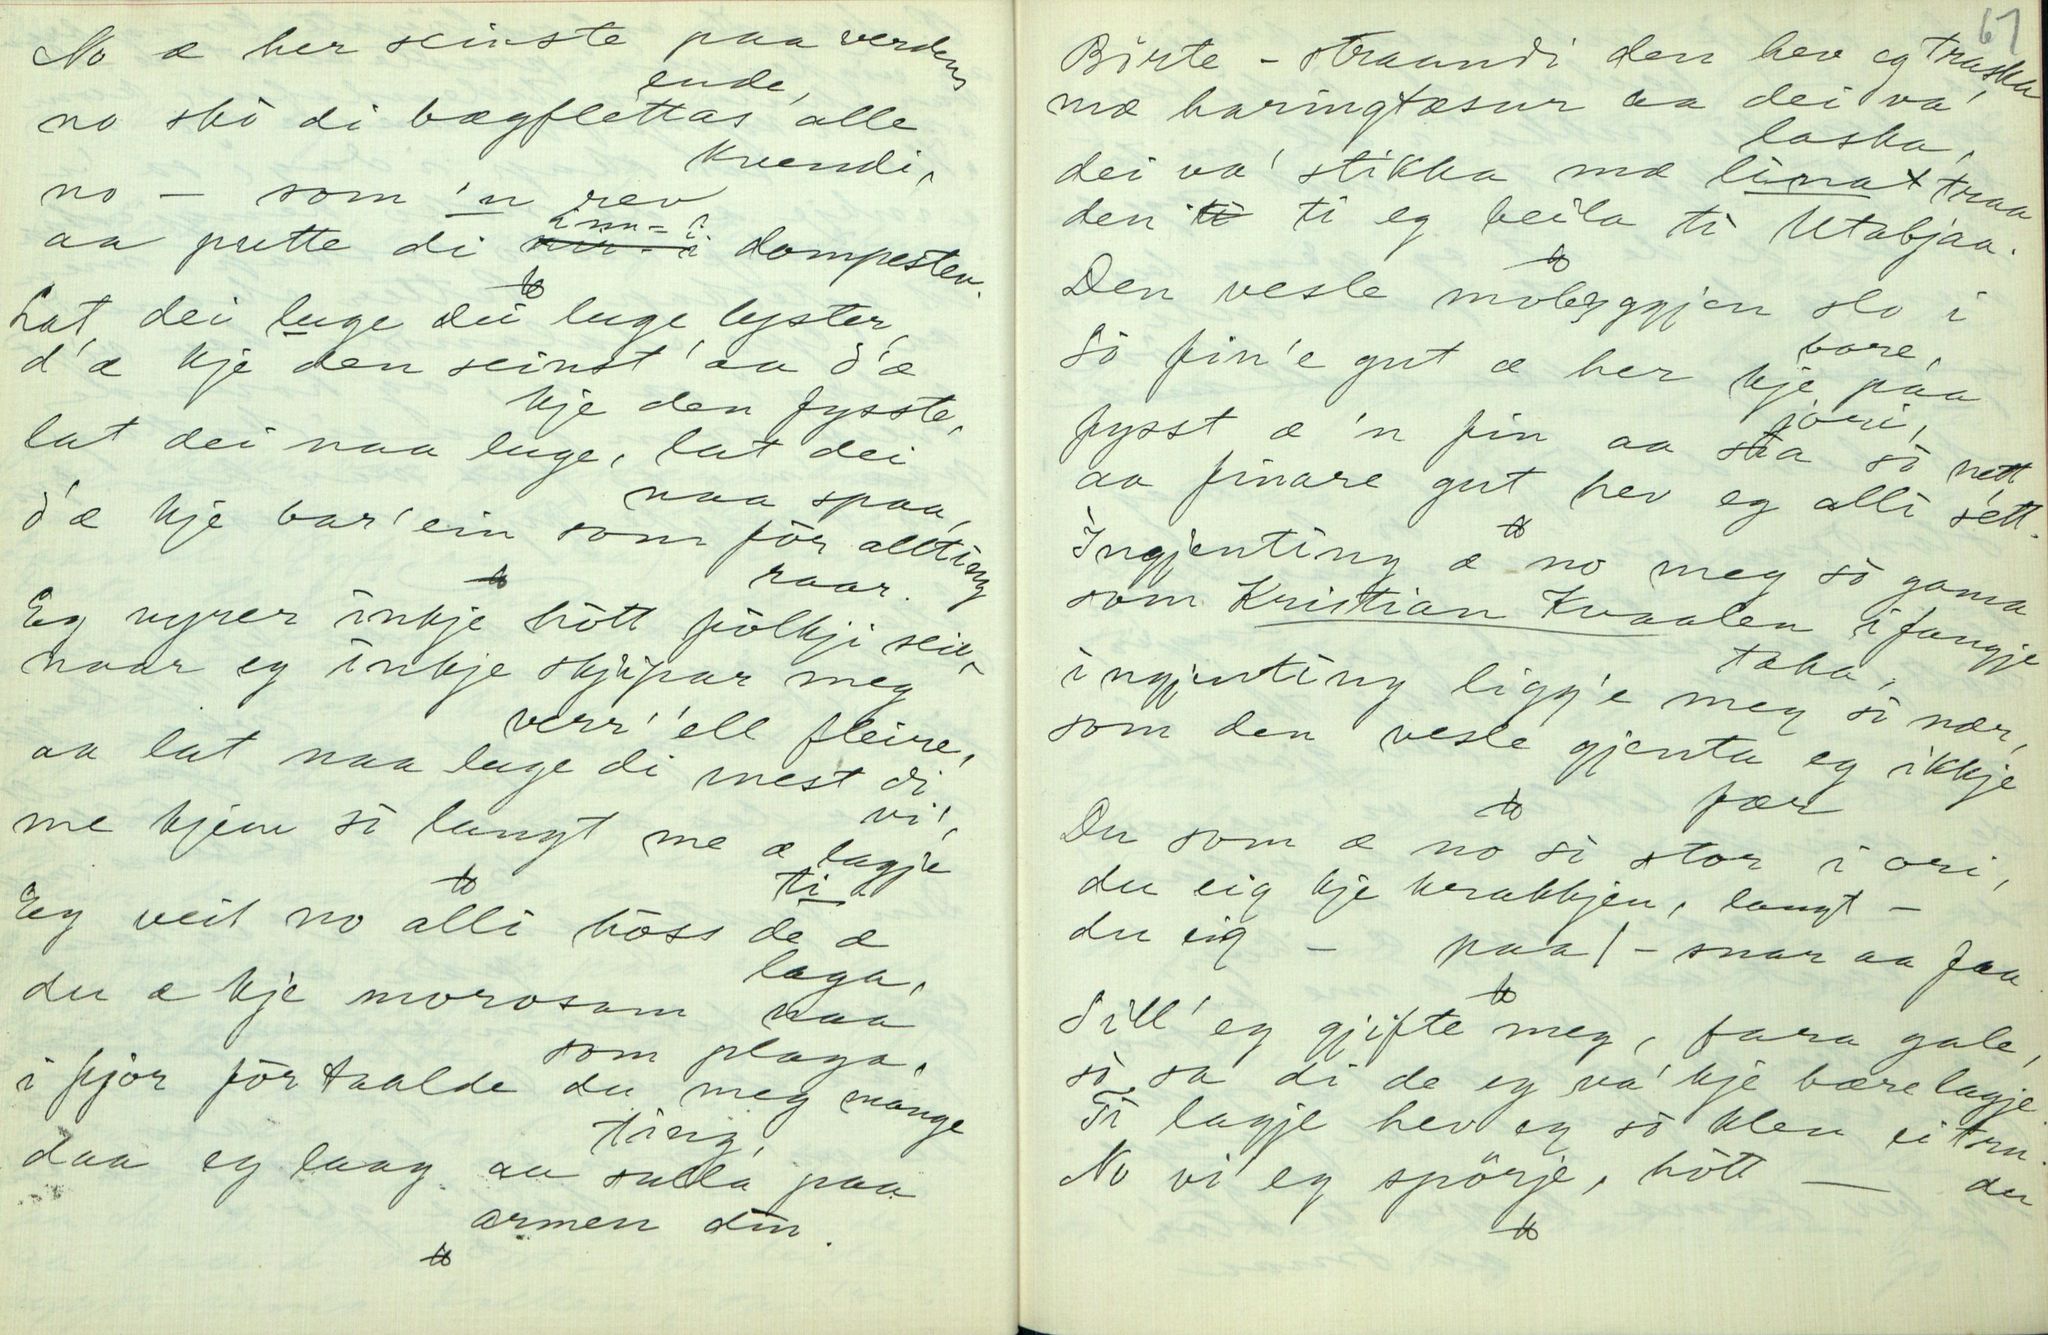 No æ her seinste paa verdens
ende,
no skò di bægflettas alle
kvendi,
no – som 'n rev
aa putte di inn-i dompesten.
Lat dei luge dei luge lyster,
d'æ kje den seinst' aa d'æ
kje den fysste,
lat dei naa luge, lat dei
naa spaa,
d'æ kje bar' ein somför allting
raar.
Eg vyrer inkje hòtt fòlkji seie,
naar eg inkje skjipar meg
verr' 'ell fleire,
aa lat naa luge di mest di
vi',
me kjem sò langt me æ lagje
ti
Eg veit no alli hòss de æ
laga,
du æ kje morosam naa
som plaga,
i fjor förtaalde du meg mange
ting,
daa eg laag aa sulla paa
armen din.
67
Börte-straandi den hev eg traska
mæ haringtæsur aa dei va'
laska,
dei va' stikka mæ lina traa
den ti eg beila ti Utabjaa.
Den vesle mòleggjen slo i
bore,
Sò fin'e gut æ her kje paa
jori,
fysst æ 'n fin aa sòa sò nett
aa finare gut hev eg alli sett.
Ingjenting æ no meg sò gama
som Kristian Kvaalen i fangje
taka,
ingjenting ligg'e meg sò nær,
som den vesle gjenta eg ikkje
fær
Du som æ no sò stor i ori,
du eig kje krakkjen, langt –
du eig – paa – snar aa faa
Sill' eg gjifte meg, fara gale,
sò sa di de eg va' kje bære lagje
Ti lagje hev eg sò klen ei tru.
No vi' eg spörje, hòtt — du